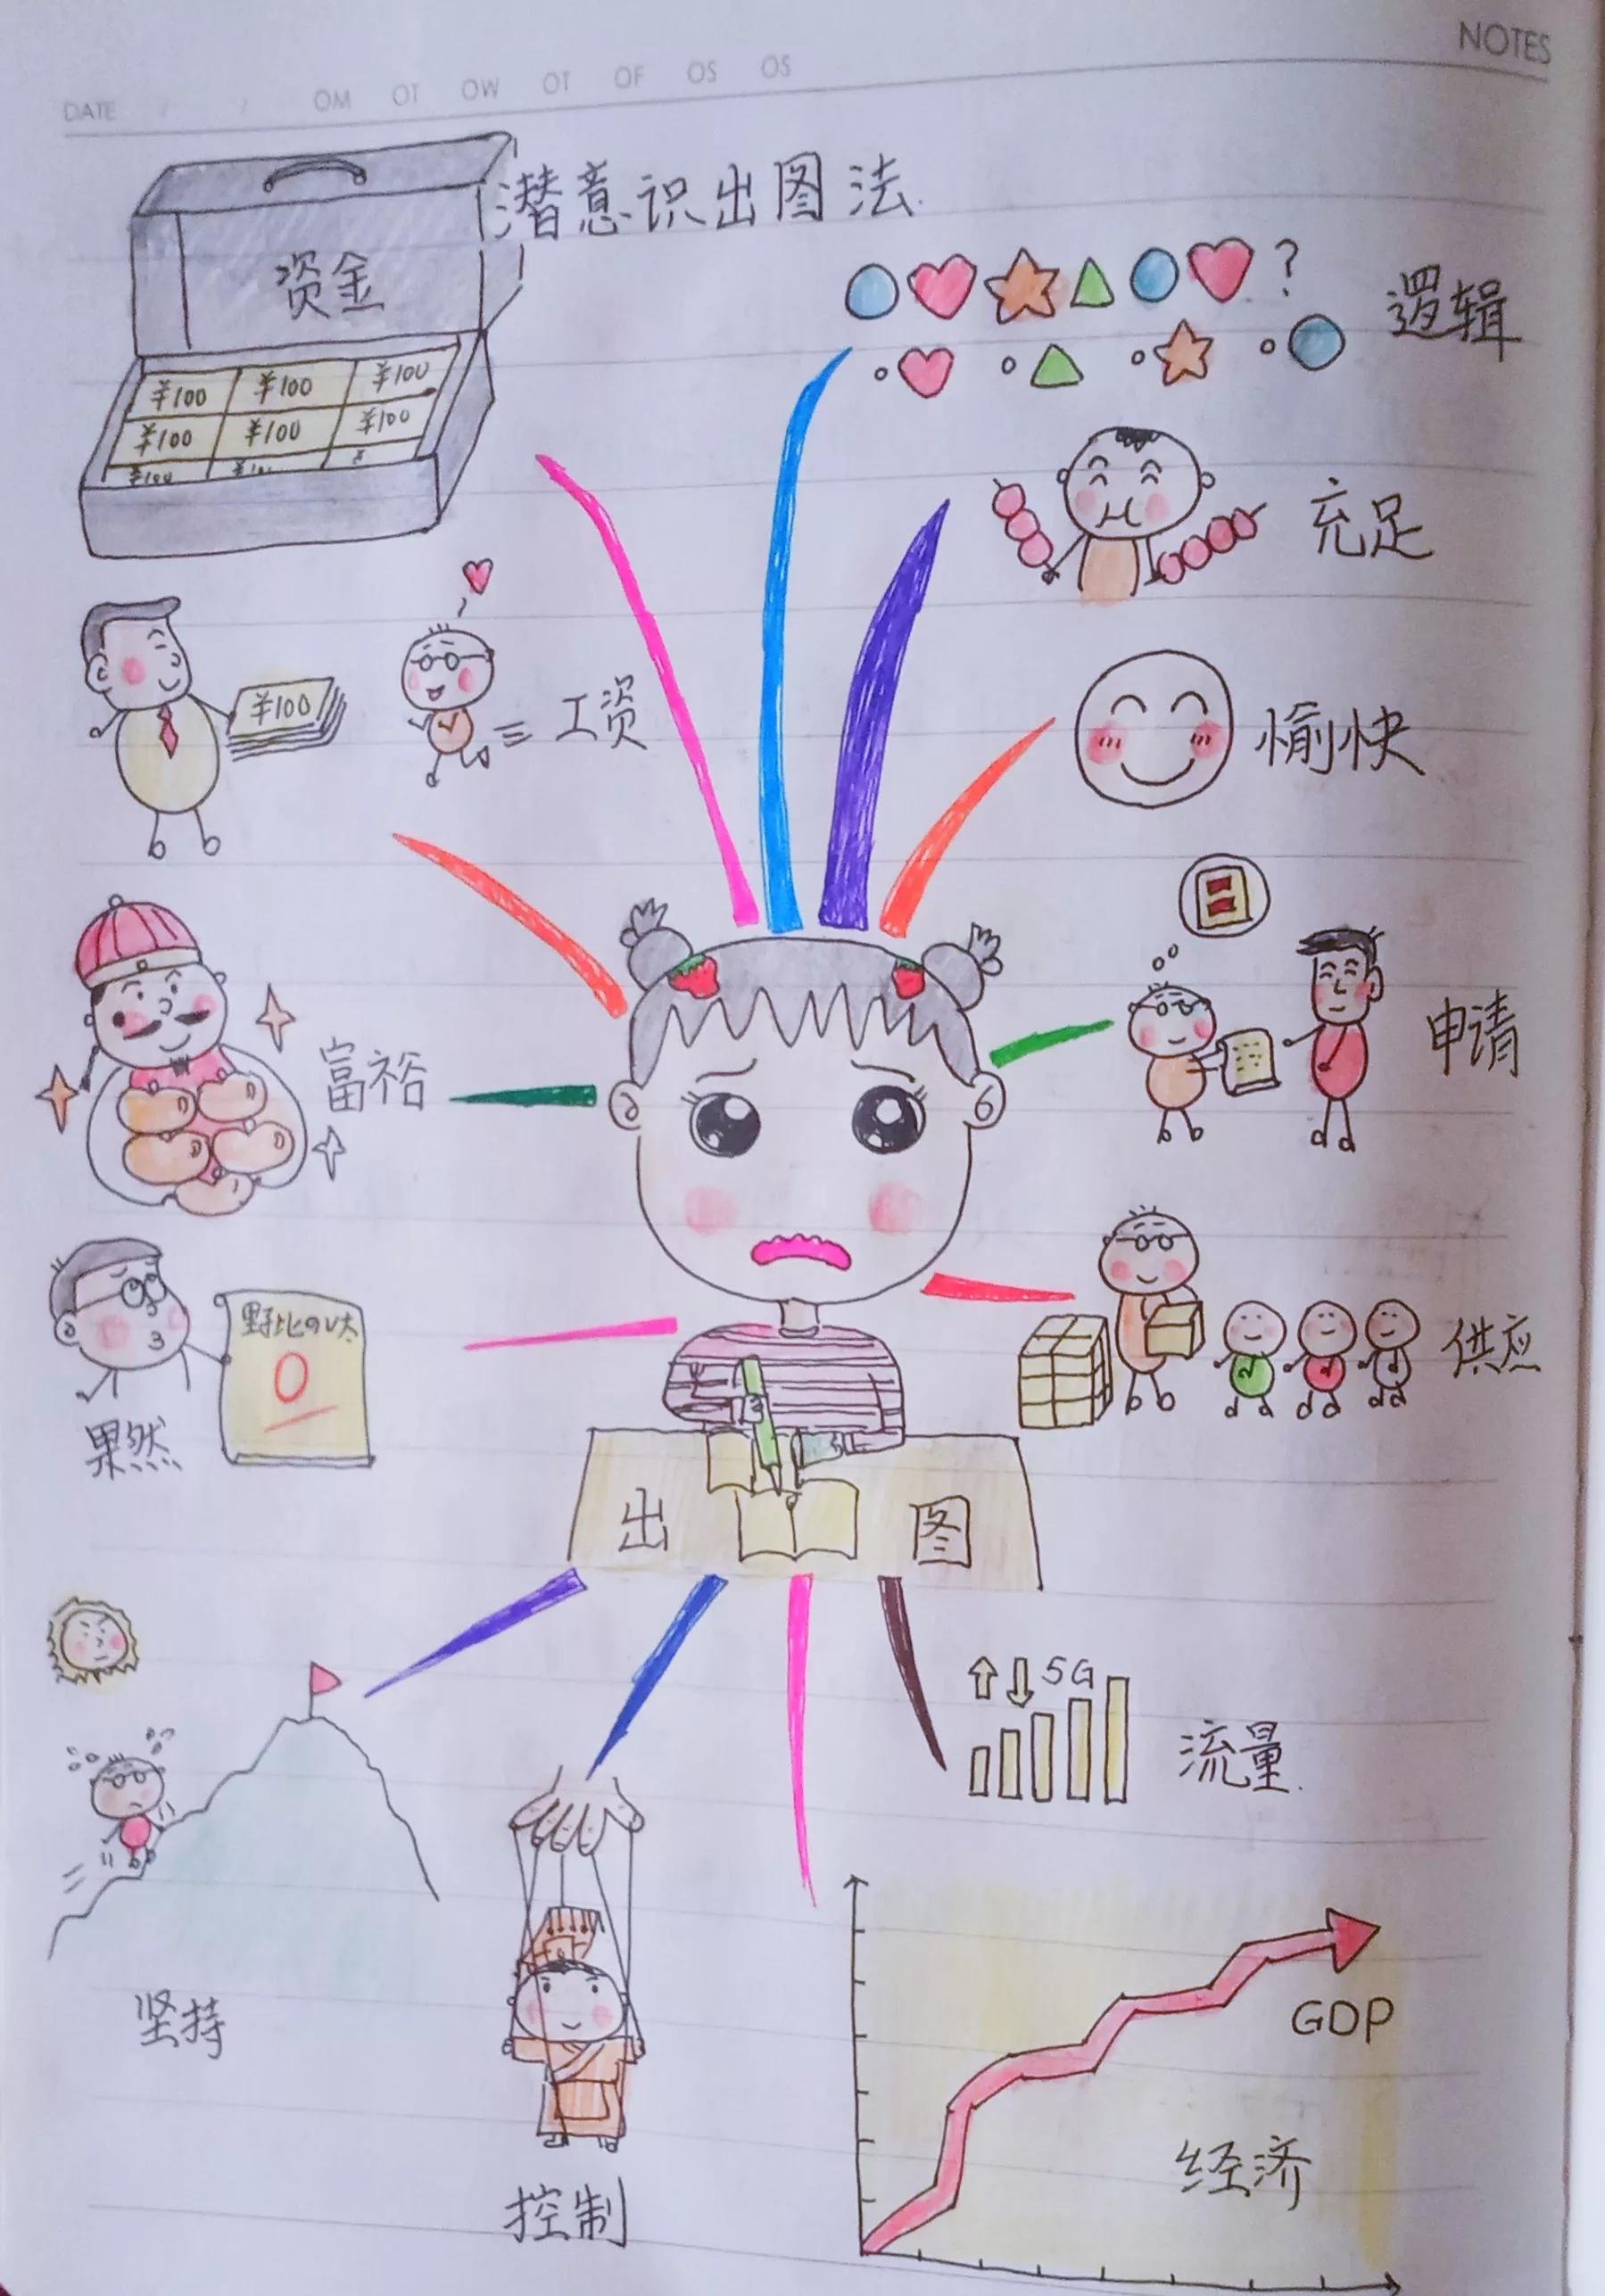 NOTES
DATE / / OM OT OW OT OF OS OS
潜意识出图法
资金
¥100 ¥100 ¥100
¥100 ¥100 ¥100
¥100
? 逻辑
充足
¥100
工资
愉快
富裕
申请
野比のび太
0
果然
供应
出 图
5G
流量
坚持
控制
GDP
经济